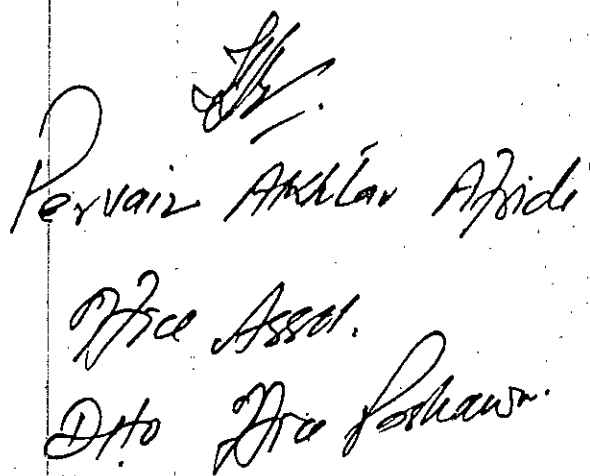 Pervaiz Akhtar Afridi
Office Asstt.
DHO Office Peshawar.